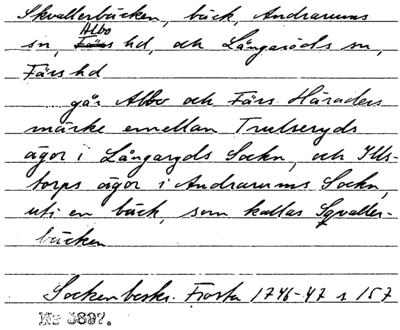 Skvallerbäcken, bäck, Andrarums
sn, Albo Färs hd, och Långaröds sn,
Färs hd
går Albo och Färs Häraders
märke emellan Trulseryds
ägor i Långaryds Sockn, och Ills-
torps ägor i Andrarums Sockn,
uti en bäck, som kallas Sqvaller-
bäcken
Sockenbeskr. Frosta 1746-47 s 157
Nr 3897.